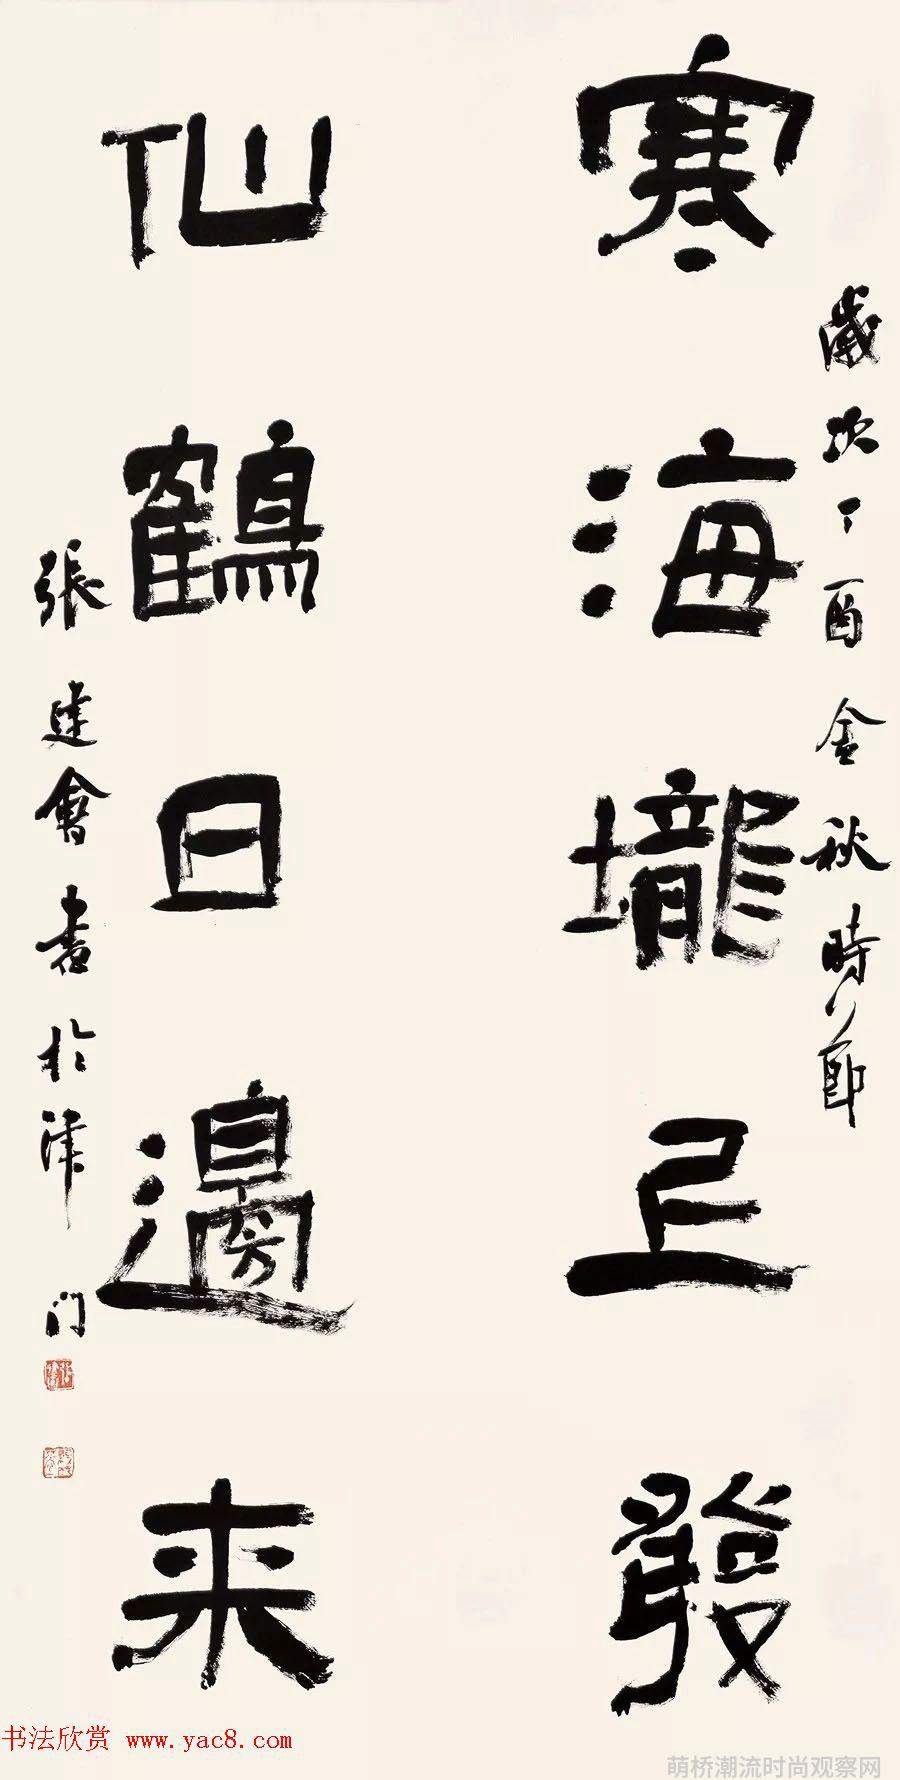 歲次丁酉金秋時節
寒海壠上發
仙鶴日邊来
張建會書於津门
书法欣赏 www.yac8.com
萌桥潮流时尚观察网